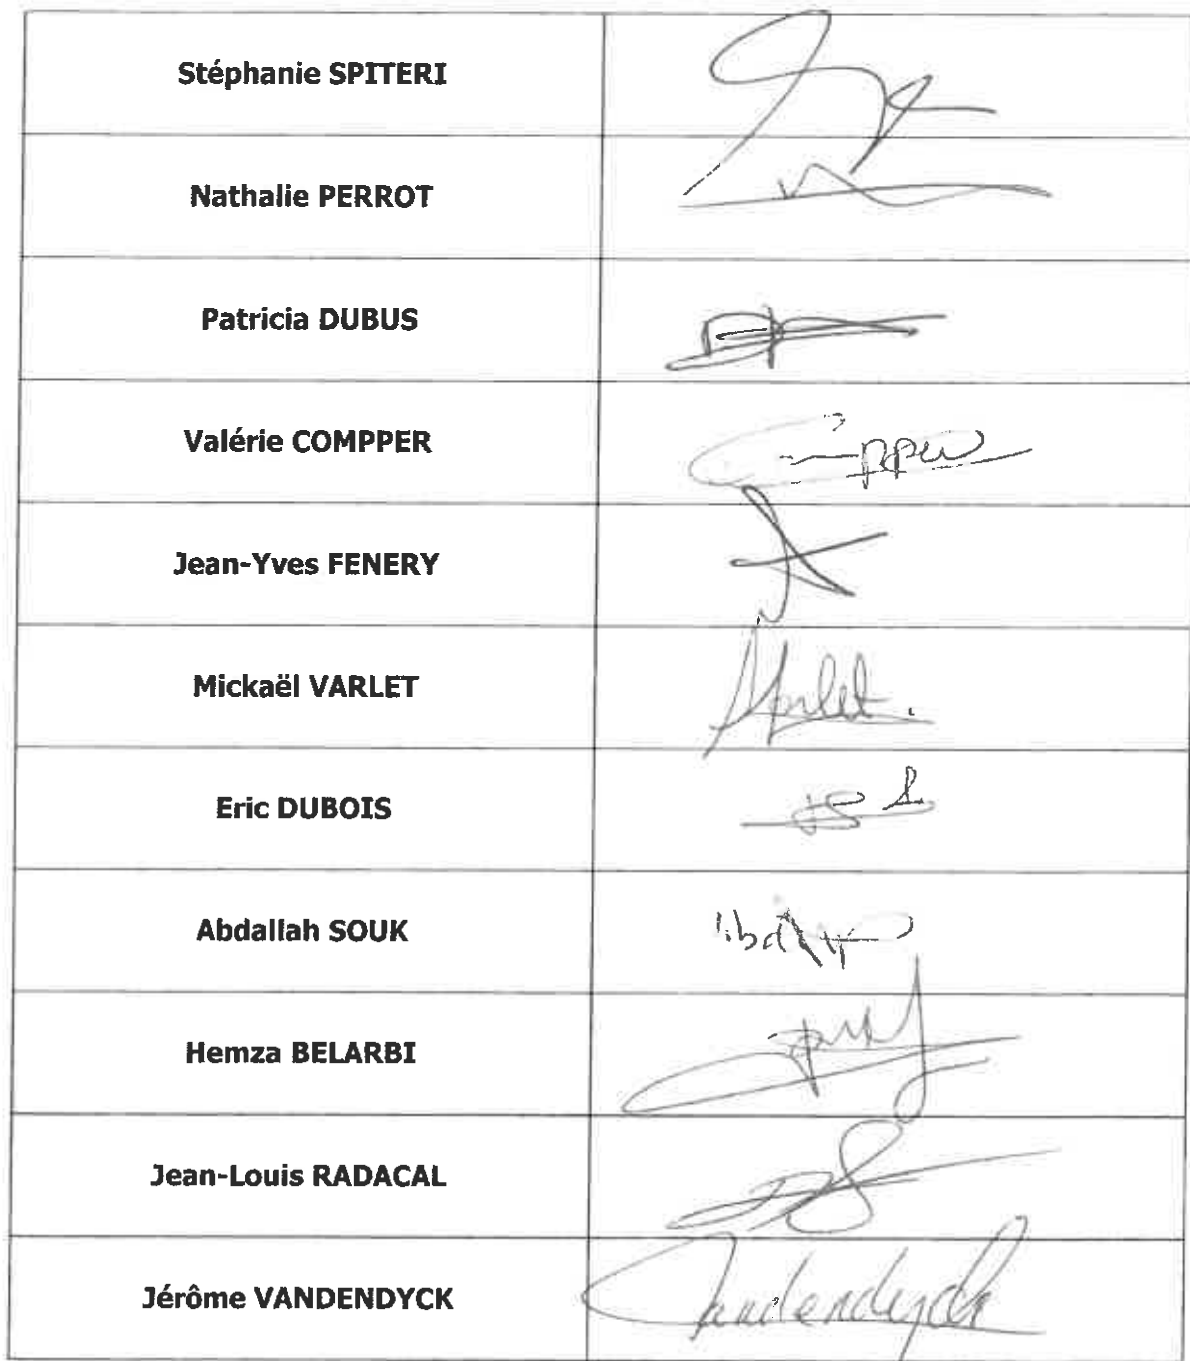 Stéphanie SPITERI
Nathalie PERROT
Patricia DUBUS
Valérie COMPPER
Jean-Yves FENERY
Mickaël VARLET
Varlet.
Eric DUBOIS
Abdallah SOUK
Hemza BELARBI
Jean-Louis RADACAL
Jérôme VANDENDYCK
Vandendyck